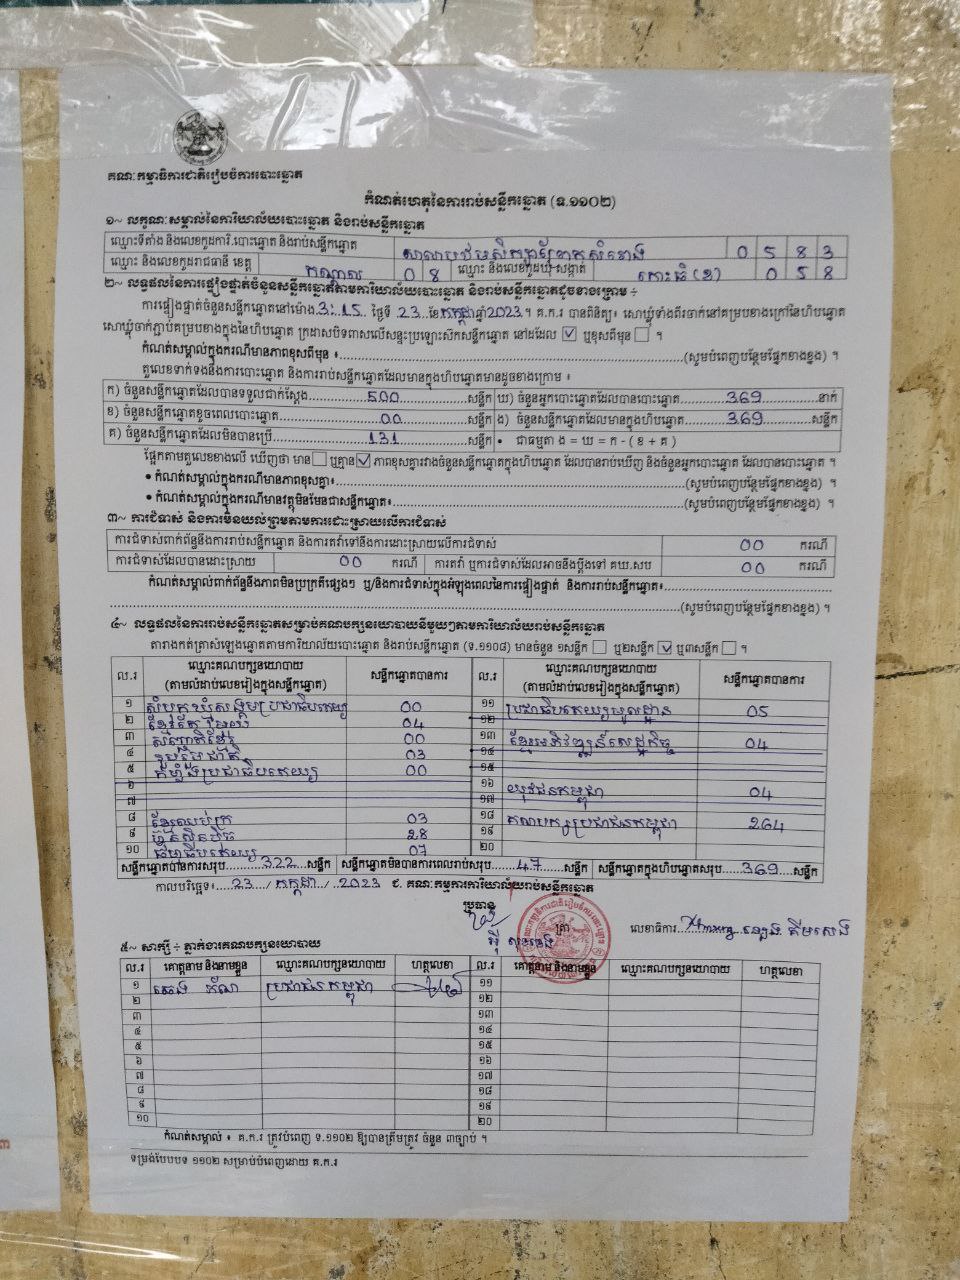 គណៈកម្មាធិការជាតិរៀបចំការបោះឆ្នោត
កំណត់ហេតុនៃការរាប់សន្លឹកឆ្នោត (ទ.១១០២)
១~ លក្ខណៈសម្គាល់នៃការិយាល័យបោះឆ្នោត និងរាប់សន្លឹកឆ្នោត
ឈ្មោះទីតាំង និងលេខកូដការិ.បោះឆ្នោត និងរាប់សន្លឹកឆ្នោត 0 5 8 3
ឈ្មោះ និងលេខកូដរាជធានី ខេត្ត កណ្តាល 0 8 ឈ្មោះ និងលេខកូដឃុំ-សង្កាត់ 0 5 8
២~ លទ្ធផលនៃការផ្ទៀងផ្ទាត់ចំនួនសន្លឹកឆ្នោតតាមការិយាល័យបោះឆ្នោត និងរាប់សន្លឹកឆ្នោតដូចខាងក្រោម ÷
ការផ្ទៀងផ្ទាត់ចំនួនសន្លឹកឆ្នោតនៅម៉ោង 3:15 ថ្ងៃទី 23 ខែកក្កដាឆ្នាំ2023។ គ.ក.រ បានពិនិត្យ៖ សោឃ្លុំទាំងពីរចាក់នៅគម្របខាងក្រៅនៃហិបឆ្នោត
សោឃ្លុំចាក់ភ្ជាប់គម្របខាងក្នុងនៃហិបឆ្នោត ក្រដាសបិទពាសលើសន្ទះប្រឡោះសឹកសន្លឹកឆ្នោត នៅដដែល ☑ ឬខុសពីមុន ☐ ។
កំណត់សម្គាល់ក្នុងករណីមានភាពខុសពីមុន ៖ (សូមបំពេញបន្ថែមផ្នែកខាងខ្នង) ។
តួលេខទាក់ទងនឹងការបោះឆ្នោត និងការរាប់សន្លឹកឆ្នោតដែលមានក្នុងហិបឆ្នោតមានដូចខាងក្រោម ៖
ក) ចំនួនសន្លឹកឆ្នោតដែលបានទទួលជាក់ស្តែង 500 សន្លឹក ឃ) ចំនួនអ្នកបោះឆ្នោតដែលបានបោះឆ្នោត 369 នាក់
ខ) ចំនួនសន្លឹកឆ្នោតខូចពេលបោះឆ្នោត 00 សន្លឹក ង) ចំនួនសន្លឹកឆ្នោតដែលមានក្នុងហិបឆ្នោត 369 សន្លឹក
គ) ចំនួនសន្លឹកឆ្នោតដែលមិនបានប្រើ 131 សន្លឹក • ជាធម្មតា ង = ឃ = ក - ( ខ + គ )
ផ្អែកតាមតួលេខខាងលើ ឃើញថា មាន ☐ ឬគ្មាន ☑ ភាពខុសគ្នារវាងចំនួនសន្លឹកឆ្នោតក្នុងហិបឆ្នោត ដែលបានរាប់ឃើញ និងចំនួនអ្នកបោះឆ្នោត ដែលបានបោះឆ្នោត ។
• កំណត់សម្គាល់ក្នុងករណីមានភាពខុសគ្នា៖ (សូមបំពេញបន្ថែមផ្នែកខាងខ្នង) ។
• កំណត់សម្គាល់ក្នុងករណីមានវត្ថុមិនមែនជាសន្លឹកឆ្នោត៖ (សូមបំពេញបន្ថែមផ្នែកខាងខ្នង) ។
៣~ ការជំទាស់ និងការមិនយល់ព្រមតាមការដោះស្រាយលើការជំទាស់
ការជំទាស់ពាក់ព័ន្ធនឹងការរាប់សន្លឹកឆ្នោត និងការតវ៉ាទៅនឹងការដោះស្រាយលើការជំទាស់ 00 ករណី
ការជំទាស់ដែលបានដោះស្រាយ 00 ករណី ការតវ៉ា ឬការជំទាស់ដែលអាចនឹងប្តឹងទៅ គឃ.សប 00 ករណី
កំណត់សម្គាល់ពាក់ព័ន្ធនឹងភាពមិនប្រក្រតីផ្សេងៗ ឬ/និងការជំទាស់ក្នុងអំឡុងពេលនៃការផ្ទៀងផ្ទាត់ និងការរាប់សន្លឹកឆ្នោត៖
(សូមបំពេញបន្ថែមផ្នែកខាងខ្នង) ។
៤~ លទ្ធផលនៃការរាប់សន្លឹកឆ្នោតសម្រាប់គណបក្សនយោបាយនីមួយៗតាមការិយាល័យរាប់សន្លឹកឆ្នោត
តារាងកត់ត្រាសំឡេងឆ្នោតតាមការិយាល័យបោះឆ្នោត និងរាប់សន្លឹកឆ្នោត (ទ.១១០៨) មានចំនួន ១សន្លឹក ☐ ឬ២សន្លឹក ☑ ឬ៣សន្លឹក ☐ ។
ល.រ ឈ្មោះគណបក្សនយោបាយ (តាមលំដាប់លេខរៀងក្នុងសន្លឹកឆ្នោត) សន្លឹកឆ្នោតបានការ ល.រ ឈ្មោះគណបក្សនយោបាយ (តាមលំដាប់លេខរៀងក្នុងសន្លឹកឆ្នោត) សន្លឹកឆ្នោតបានការ
១ សំបុកឃ្មុំសង្គមប្រជាធិបតេយ្យ 00 ១១ ប្រជាធិបតេយ្យមូលដ្ឋាន 05
២ ខ្មែរតែមួយ 04 ១២
៣ សញ្ជាតិខ្មែរ 00 ១៣ ខ្មែរអភិវឌ្ឍន៍សេដ្ឋកិច្ច 04
៤ រួបរួមជាតិ 03 ១៤
៥ កម្លាំងប្រជាធិបតេយ្យ 00 ១៥
៦ ១៦ យុវជនកម្ពុជា 04
៧ ១៧
៨ ខ្មែរឈប់ក្រ 03 ១៨ គណបក្សប្រជាជនកម្ពុជា 264
៩ ហ្វ៊ុនស៊ិនប៉ិច 28 ១៩
១០ ធម្មាធិបតេយ្យ 07 ២០
សន្លឹកឆ្នោតបានការសរុប 322 សន្លឹក សន្លឹកឆ្នោតមិនបានការពេលរាប់សរុប 47 សន្លឹក សន្លឹកឆ្នោតក្នុងហិបឆ្នោតសរុប 369 សន្លឹក
កាលបរិច្ឆេទ៖ 23 / កក្កដា / 2023 ៩. គណៈកម្មការការិយាល័យរាប់សន្លឹកឆ្នោត
ប្រធាន
ត្រា លេខាធិការ
៥~ សាក្សី ÷ ភ្នាក់ងារគណបក្សនយោបាយ
ល.រ គោត្តនាម និងនាមខ្លួន ឈ្មោះគណបក្សនយោបាយ ហត្ថលេខា ល.រ គោត្តនាម និងនាមខ្លួន ឈ្មោះគណបក្សនយោបាយ ហត្ថលេខា
១ ប្រជាជនកម្ពុជា ១១
២ ១២
៣ ១៣
៤ ១៤
៥ ១៥
៦ ១៦
៧ ១៧
៨ ១៨
៩ ១៩
១០ ២០
កំណត់សម្គាល់ ៖ គ.ក.រ ត្រូវបំពេញ ទ.១១០២ ឱ្យបានត្រឹមត្រូវ ចំនួន ៣ច្បាប់ ។
ទម្រង់បែបបទ ១១០២ សម្រាប់បំពេញដោយ គ.ក.រ